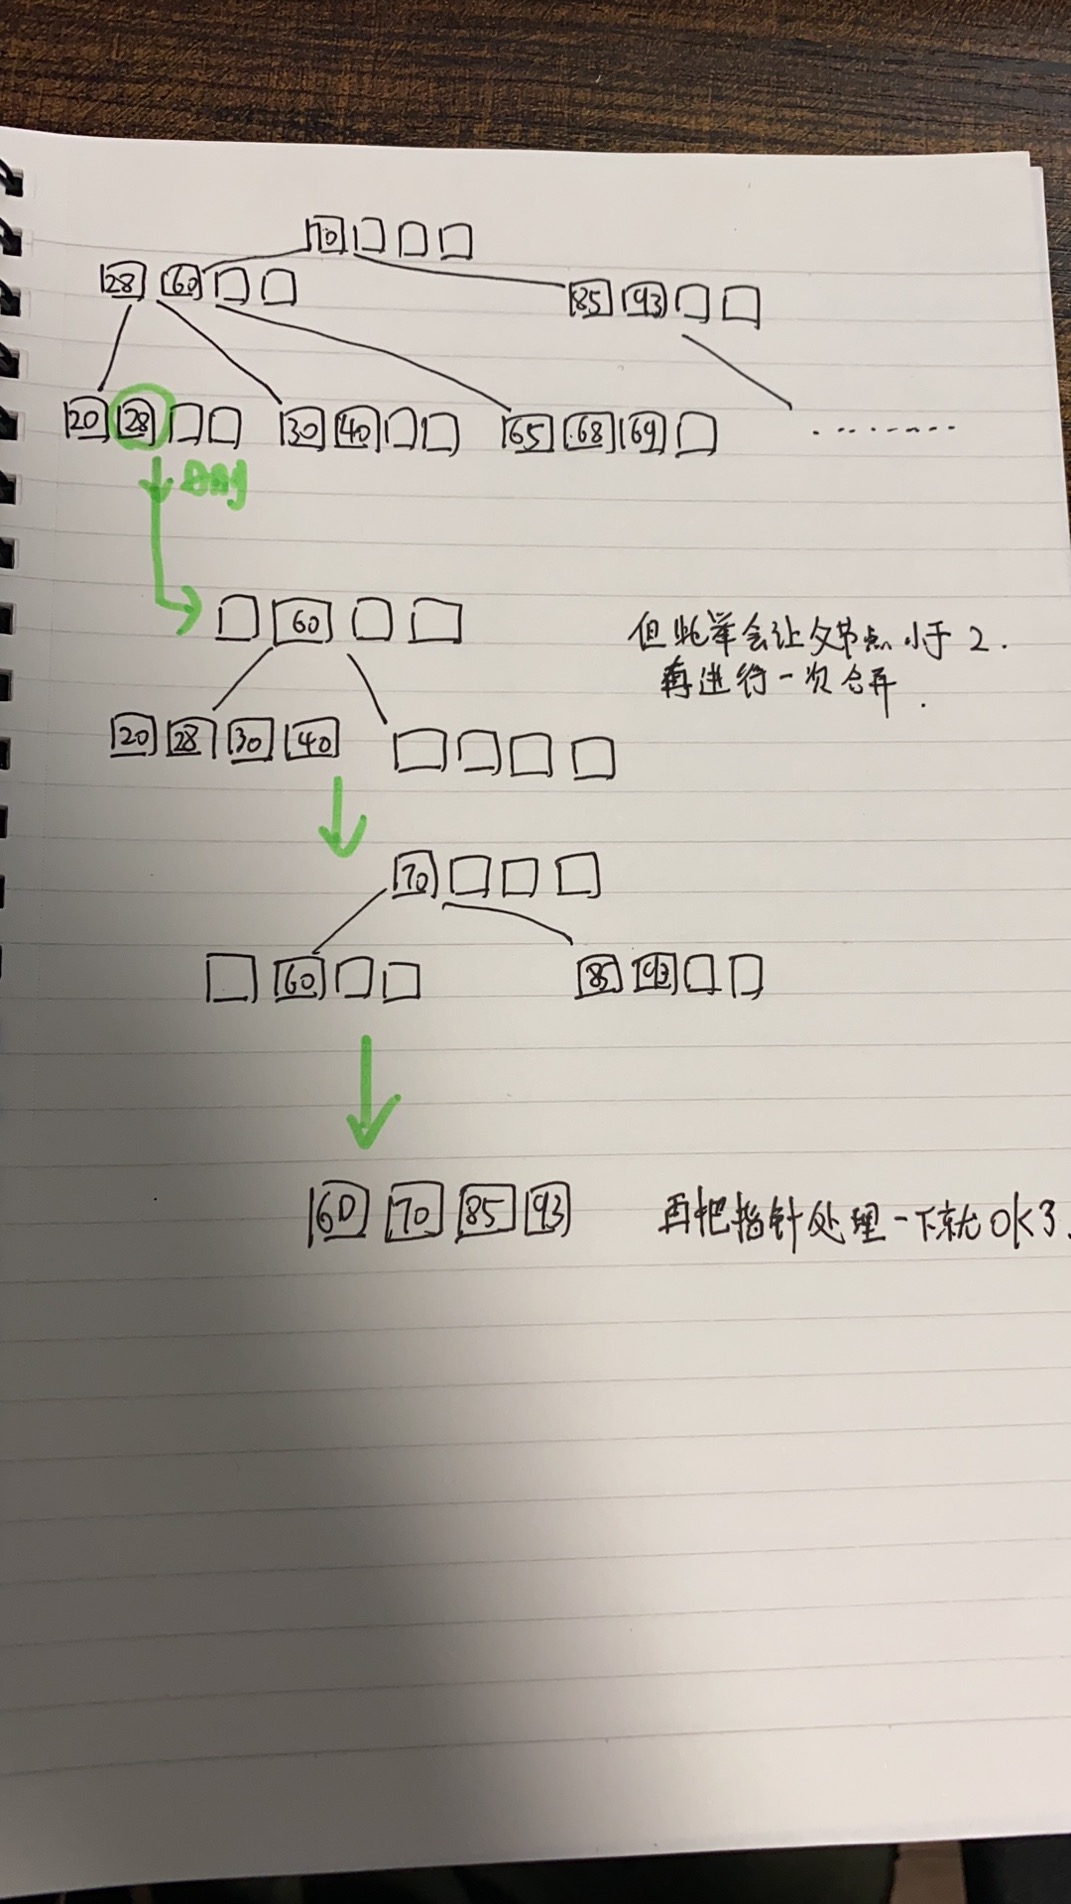 70
28 60
85 93
20 28 30 40 65 68 69 ........
60
但此举会让父节点小于2.
再进行一次合并.
20 28 30 40
70
60 85 93
60 70 85 93 再把指针处理一下就OK了.